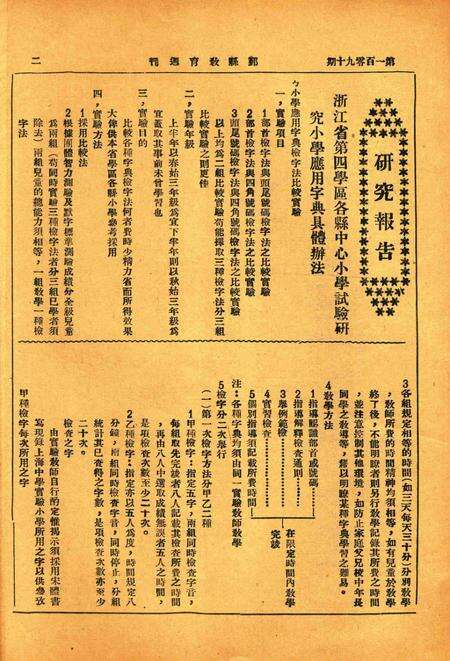 第一百零九十期
鄞縣教育週刊
二
研究報告
浙江省第四學區各縣中心小學試驗研
究小學應用字典具體辦法
ㄅ小學應用字典檢字法比較實驗
一，實驗項目
1部首檢字法與頭尾號碼檢字法之比較實驗
2部首檢字法與四角號碼檢字法之比較實驗
3頭尾號碼檢字法與四角號碼檢字法之比較實驗
以上均爲二組比較實驗苟能採取三種檢字法分三組
比較實驗之則更佳
二，實驗年級
上半年以春始三年級爲宜下半年則以秋始三年級爲
宜蓋取其事前未曾學習也
三，實驗目的
比較各種字典檢字法何者費時少精力省而所得效果
大俾供本省學區各縣小學參考採用
四，實驗方法
1採用比較法
2根據團體智力測驗及默字標準測驗成績分全級兒童
爲兩組（苟同時實驗三種檢字法者分三組已學者須
除去）兩組兒童的總能力須相等，一組教學一種檢
字法
3各組規定相等的時間（如三天每天三十分）分別教學
，教師所費的時間精神均須相等，如有兒童於教學
終了後，不能明瞭者則另行教學記錄其所費之時間
，並注意控制其他環境，如防止家庭父兄校中年長
同學之教導等，藉以明瞭某種字典學習之難易。
4教學方法
1指導認識部首或號碼
2指導解釋檢查通則
3舉例範檢
4實習檢查
5個別指導須記載所費時間
在限定時間內教學
完竣
注：各種字典均須由同一實驗教師教學
5檢字分二次舉行
（一）第一次檢字方法分甲乙二種
1甲種檢字：指定五字，兩組同時檢查字音，
每組取先完讀者八人記載其檢查所費之時間
，再由八人中選取成績無誤者五人之時間，
是項檢查次數至少二十次。
2乙種檢字：指定亦以五人爲度，時間規定八
分鐘，兩組同時檢查字音，同時停止，分組
統計其已查得之字數，是項檢查次數亦至少
二十次。
檢查之字
由實驗教師自行酌定惟揭示須採用宋體書
寫現錄上海中學實驗小學所用之字以供參攷
甲種檢字每次所用之字